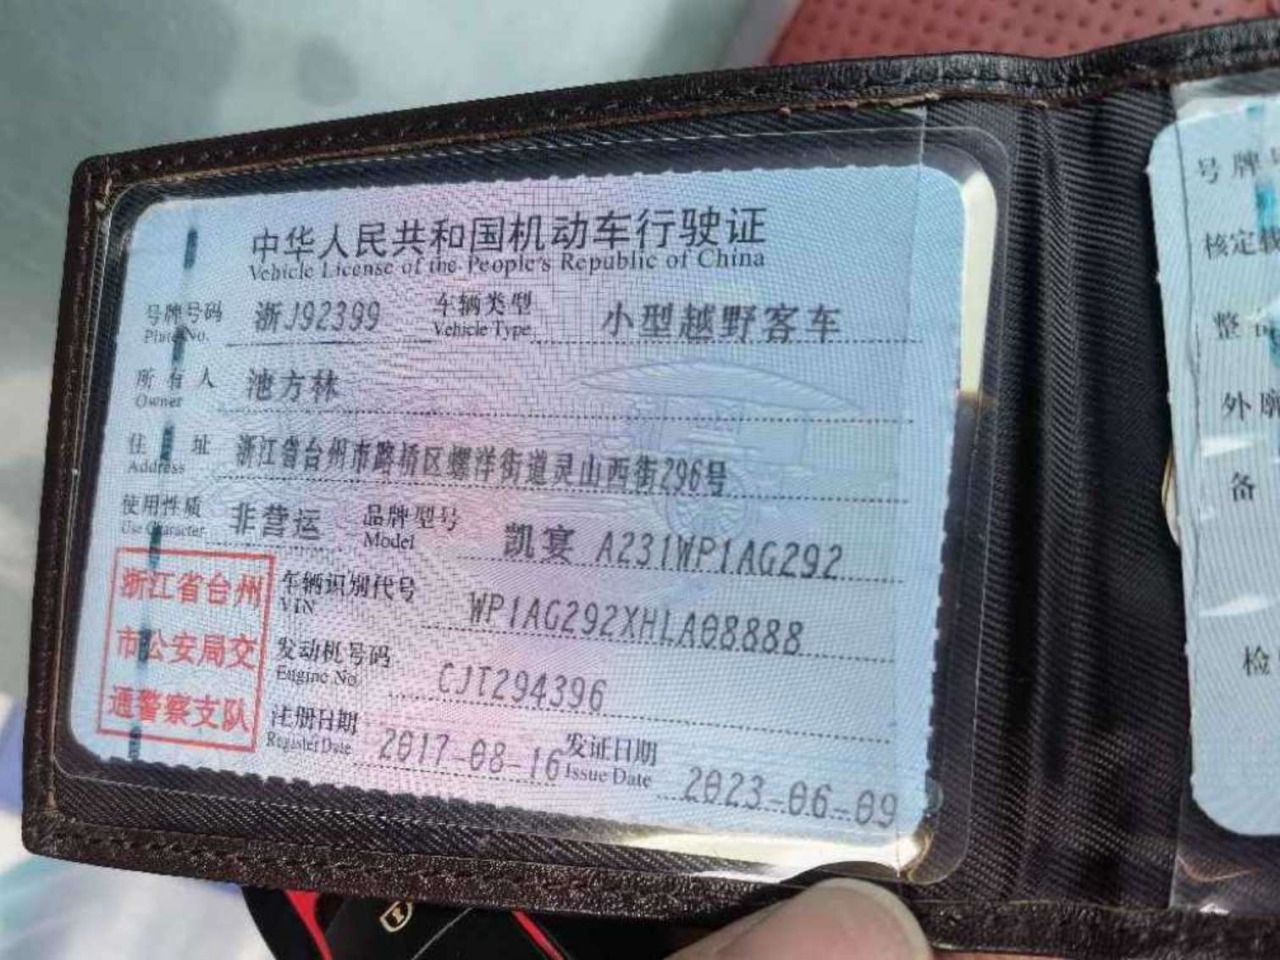 中华人民共和国机动车行驶证
Vehicle License of the People's Republic of China
号牌号码 浙J92399 车辆类型 小型越野客车
Plate No. Vehicle Type
所有人 池方林
Owner
住址 浙江省台州市路桥区螺洋街道灵山西街296号
Address
使用性质 非营运 品牌型号 凯宴 A231WP1AG292
Use Character Model
浙江省台州
市公安局交
通警察支队
车辆识别代号 WP1AG292XHLA08888
VIN
发动机号码 CJT294396
Engine No.
注册日期 2017-08-16 发证日期 2023-06-09
Register Date Issue Date
号牌
核定载
整
外廓
备
检